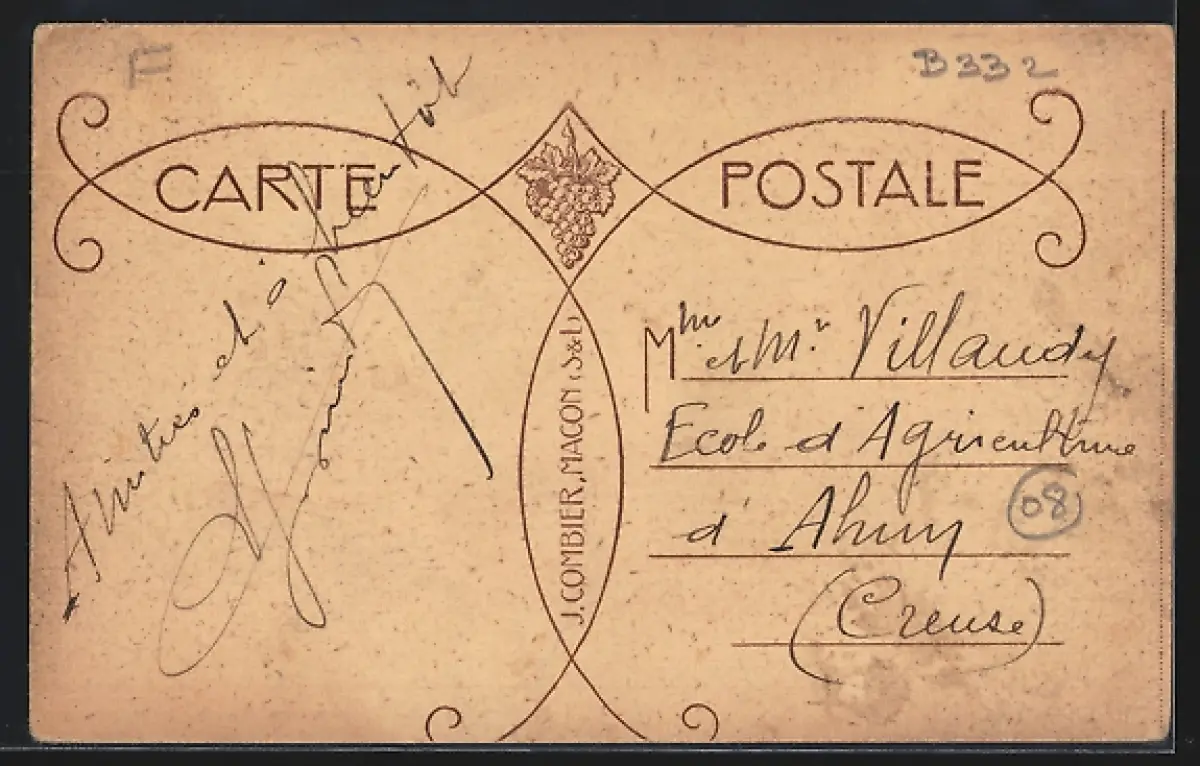 F
B332
CARTE POSTALE
Amitiés et à bientôt
J. COMBIER, MACON (S&L)
Mme et Mr Villaudy
Ecole d'Agriculture
d'Ahun
08
(Creuse)